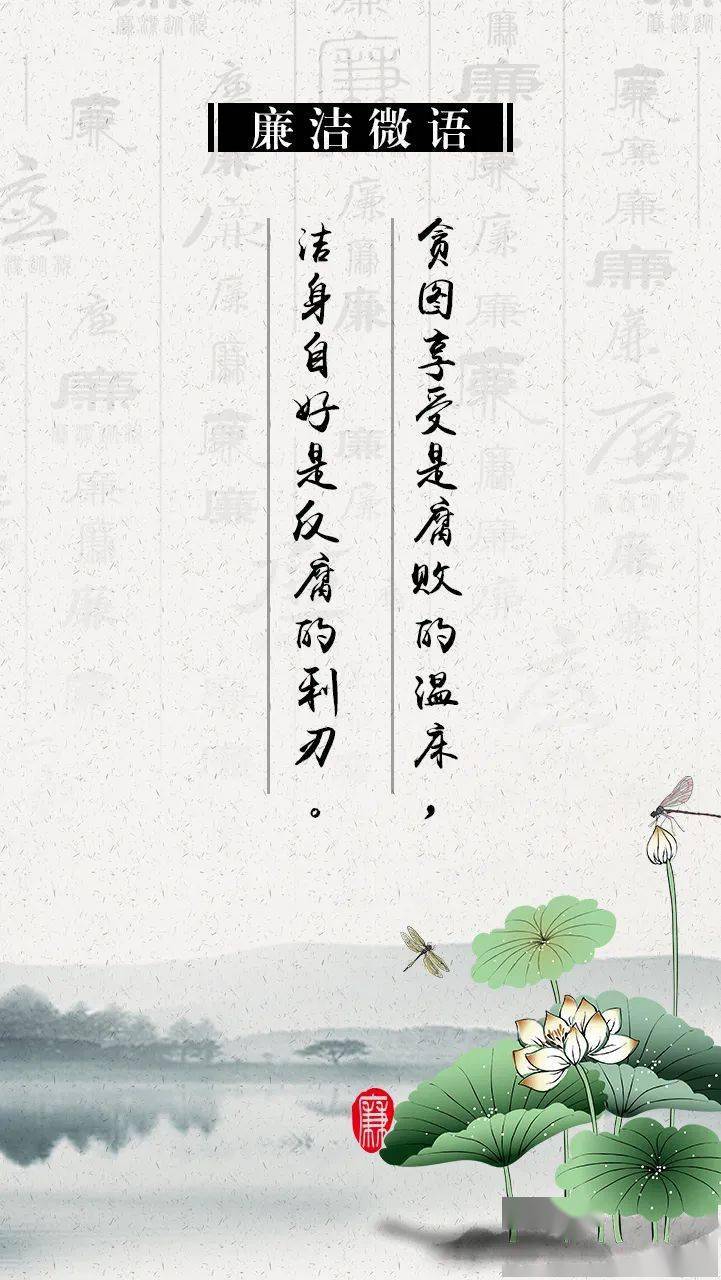 廉洁微语
贪图享受是腐败的温床，
洁身自好是反腐的利刃。
廉